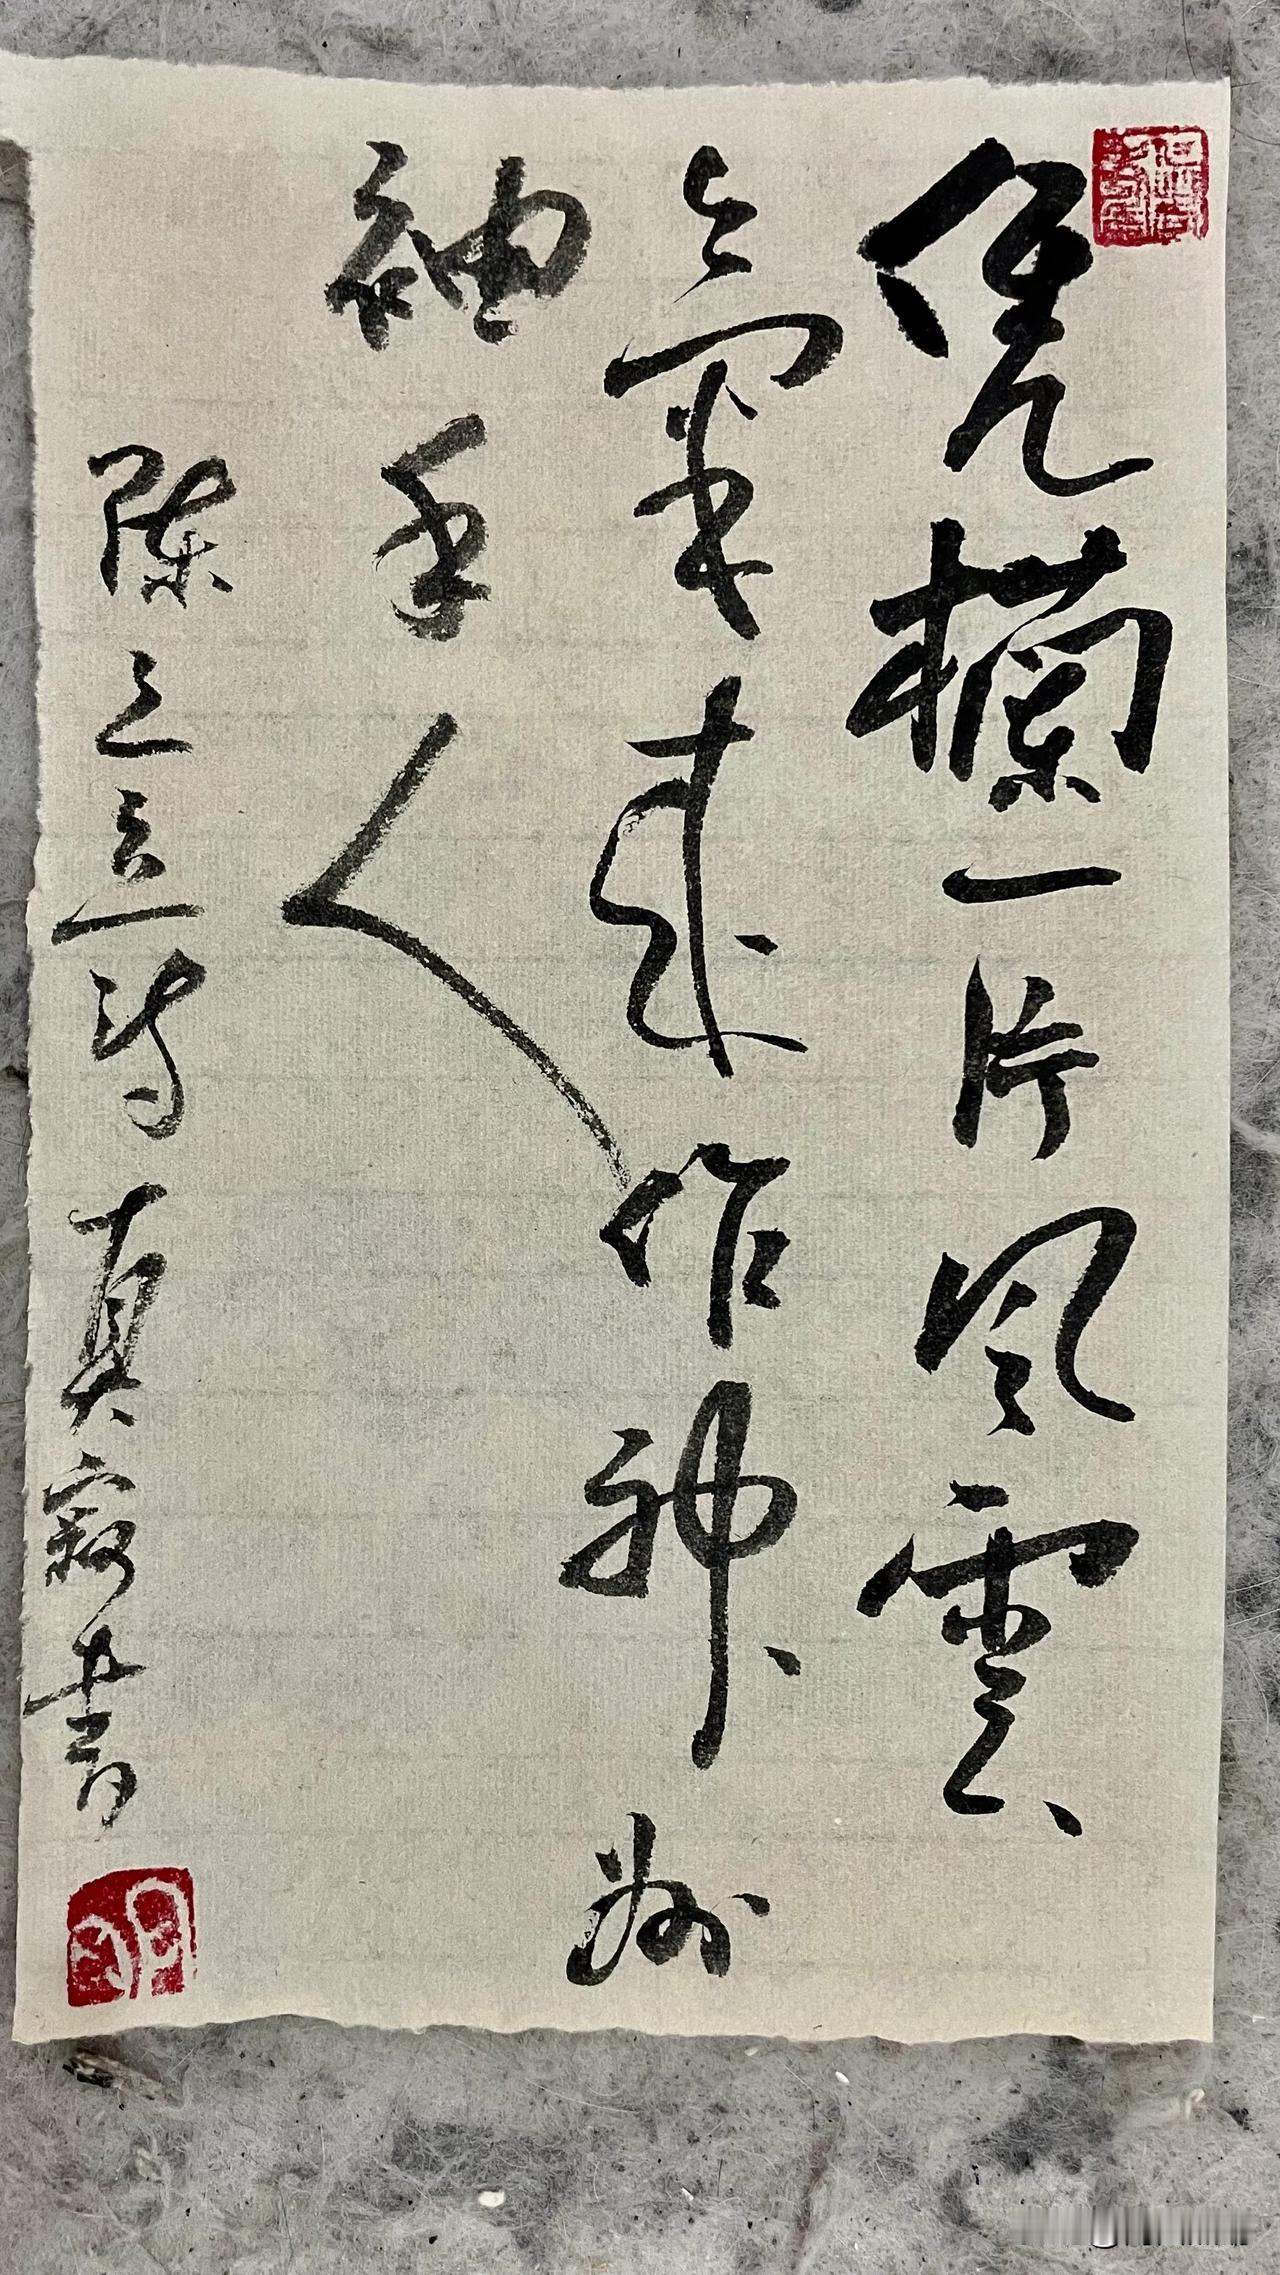 凭栏一片风雲
氣来作神州
袖手人
陈三立诗真寂书